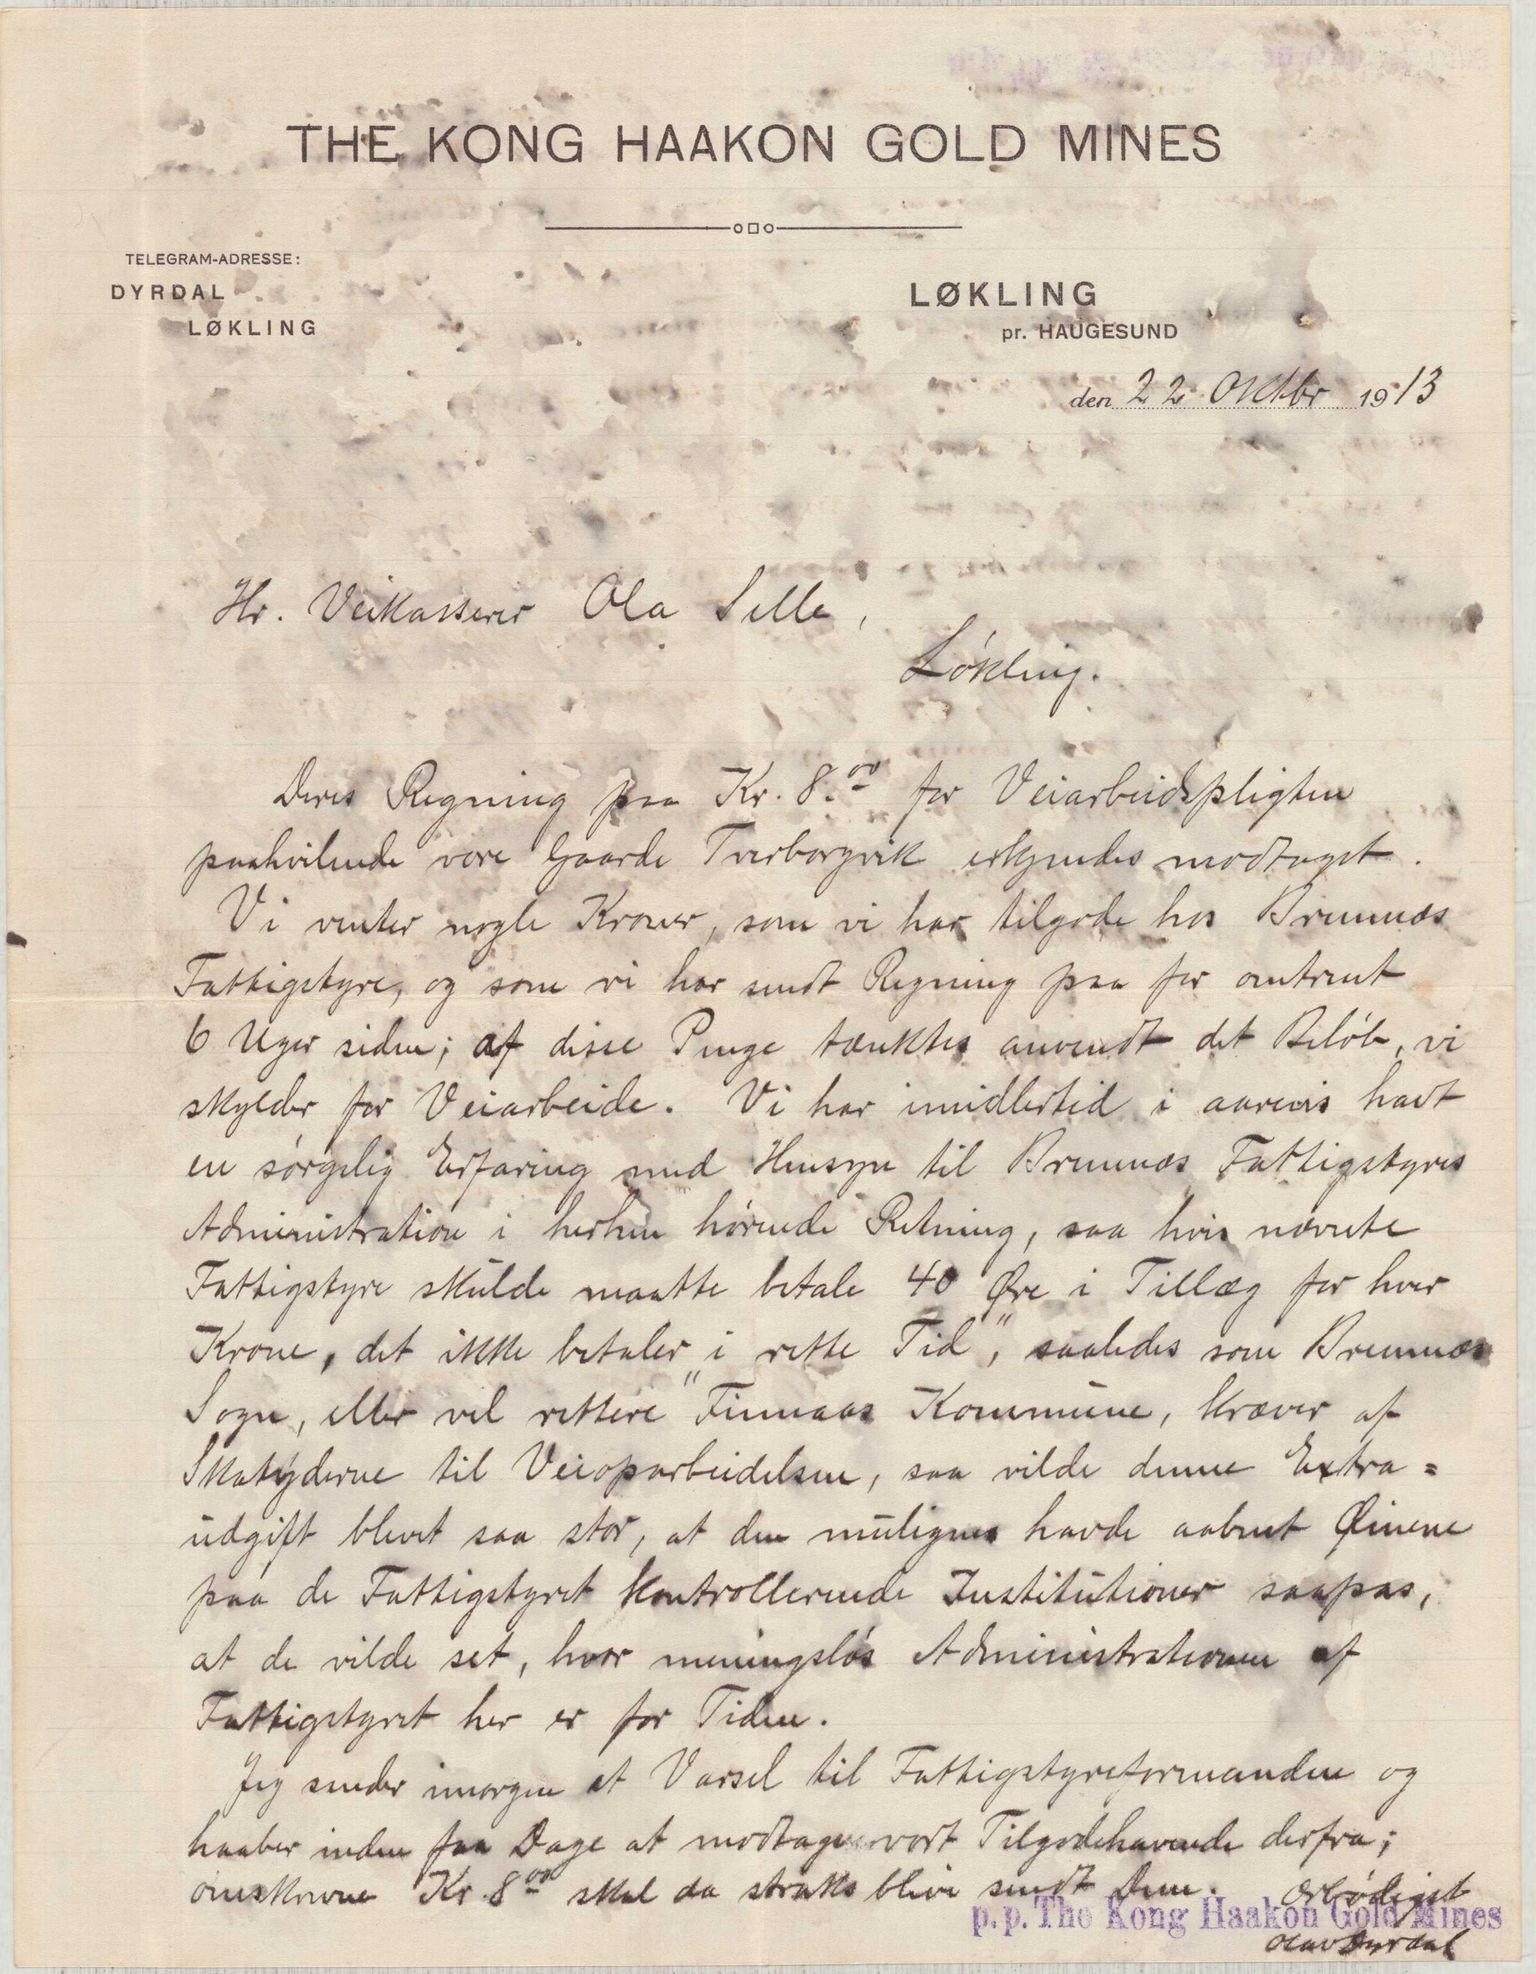 THE KONG HAAKON GOLD MINES
TELEGRAM-ADRESSE:
DYRDAL
LØKLING
LØKLING
pr. HAUGESUND
den 22 Oktbr 1913
Hr. Veikasserer Ola Selle,
Løkling.
Deres Regning paa Kr. 8.00 for Veiarbeidspligten
paahvilende vore Gaarde Tverborgvik erkjendes modtaget.
Vi venter nogle Kroner, som vi har tilgode hos Bremnæs
Fattigstyre, og som vi har sendt Regning paa for omtrent
6 Uger siden; af disse Penge tænktes anvendt det Beløb, vi
skylder for Veiarbeide. Vi har imidlertid i aarevis havt
en sørgelig Erfaring med Hensyn til Bremnæs Fattigstyres
Administration i herhen hørende Retning, saa hvis nævnte
Fattigstyre skulde maatte betale 40 Øre i Tillæg for hver
Krone, det ikke betaler "i rette Tid", saaledes som Bremnæs
Sogn, eller vel rettere Finnaas Kommune, kræver af
Skatyderne til Veioparbeidelsen, saa vilde denne Extra=
udgift blevet saa stor, at den muligens havde aabnet Øinene
paa de Fattigstyret kontrollerende Institutioner saapas,
at de vilde set, hvor meningsløs Administrationen af
Fattigstyret her er for Tiden.
Jeg sender imorgen et Varsel til Fattigstyreformanden og
haaber inden faa Dage at modtage vort Tilgodehavende derfra;
omskrevne Kr. 8.00 skal da straks blive sendt Dem. Ærbødigst
p. p. The Kong Haakon Gold Mines
Olav Dyrdal